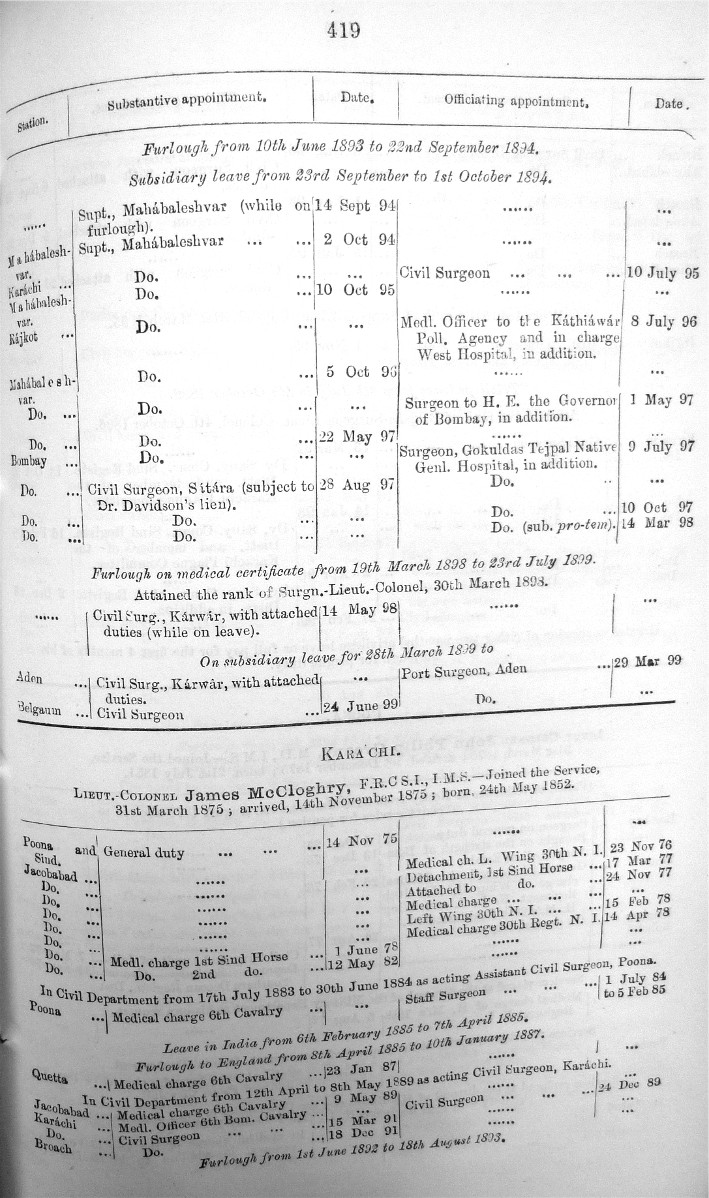 419
Station. Substantive appointment. Date. Officiating appointment. Date.
Furlough from 10th June 1893 to 22nd September 1894.
Subsidiary leave from 23rd September to 1st October 1894.
...... Supt., Mahábaleshvar (while on furlough). 14 Sept 94 ...... ...
Mahábaleshvar. Supt., Mahábaleshvar ... ... 2 Oct 94 ...... ...
Karáchi ... Do. ... ... Civil Surgeon ... ... ... 10 July 95
Mahábaleshvar. Do. ... 10 Oct 95 ...... ...
Rájkot ... Do. ... ... Medl. Officer to the Káthiáwár Poll. Agency and in charge West Hospital, in addition. 8 July 96
Mahábaleshvar. Do. ... 5 Oct 96 ...... ...
Do. ... Do. ... ... Surgeon to H. E. the Governor of Bombay, in addition. 1 May 97
Do. ... Do. ... 22 May 97 ...... ...
Bombay ... Do. ... ... Surgeon, Gokuldas Tejpal Native Genl. Hospital, in addition. 9 July 97
Do. ... Civil Surgeon, Sátára (subject to Dr. Davidson's lien). 28 Aug 97 Do. .. ...
Do. ... Do. ... ... Do. ... 10 Oct 97
Do. ... Do. ... ... Do. (sub. pro-tem). 14 Mar 98
Furlough on medical certificate from 19th March 1898 to 23rd July 1899.
Attained the rank of Surgn.-Lieut.-Colonel, 30th March 1898.
...... Civil Surg., Kárwár, with attached duties (while on leave). 14 May 98 ...... ...
On subsidiary leave for 28th March 1899 to
Aden ... Civil Surg., Kárwár, with attached duties. ... Port Surgeon, Aden ... 29 Mar 99
Belgaum ... Civil Surgeon ... 24 June 99 Do. ...
KARÁCHI.
LIEUT.-COLONEL James McCloghry, F.R.C S.I., I.M.S.—Joined the Service,
31st March 1875; arrived, 14th November 1875; born, 24th May 1852.
Poona and Sind. General duty ... ... ... 14 Nov 75 ...... ...
Jacobabad ... ...... ... Medical ch. L. Wing 30th N. I. 23 Nov 76
Do. ... ...... ... Detachment, 1st Sind Horse ... 17 Mar 77
Do. ... ...... ... Attached to do. ... 24 Nov 77
Do. ... ...... ... Medical charge ... ... ... ...
Do. ... ...... ... Left Wing 30th N. I. ... ... 15 Feb 78
Do. ... ...... ... Medical charge 30th Regt. N. I. 14 Apr 78
Do. ... Medl. charge 1st Sind Horse ... 1 June 78 ...... ...
Do. ... Do. 2nd do. ... 12 May 82 ...... ...
In Civil Department from 17th July 1883 to 30th June 1884 as acting Assistant Civil Surgeon, Poona.
Poona ... Medical charge 6th Cavalry ... ... Staff Surgeon ... ... ... 1 July 84 to 5 Feb 85
Leave in India from 6th February 1885 to 7th April 1885.
Furlough to England from 8th April 1885 to 10th January 1887.
Quetta ... Medical charge 6th Cavalry ... 23 Jan 87 ...... ...
In Civil Department from 12th April to 8th May 1889 as acting Civil Surgeon, Karáchi.
Jacobabad ... Medical charge 6th Cavalry ... 9 May 89 ...... ...
Karáchi ... Medl. Officer 6th Bom. Cavalry ... ... Civil Surgeon ... ... ... 24 Dec 89
Do. ... Civil Surgeon ... ... ... 15 Mar 91 ...... ...
Broach ... Do. ... 18 Dec 91 ...... ...
Furlough from 1st June 1892 to 18th August 1893.